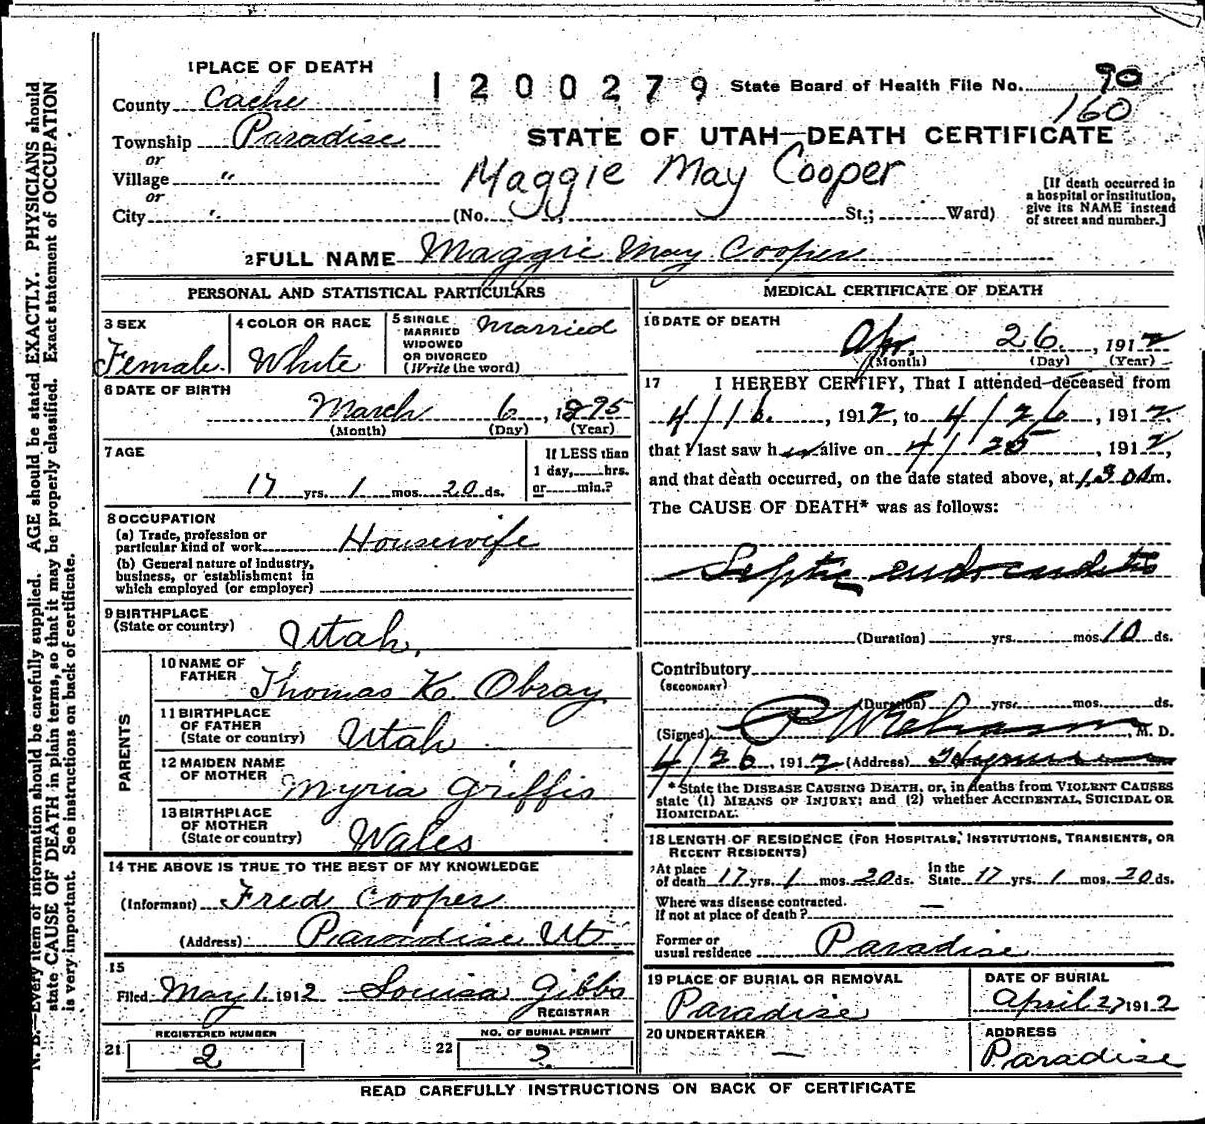 1 PLACE OF DEATH
1200279 State Board of Health File No. 90
160
County Cache
Township Paradise
or
Village "
or
City "
STATE OF UTAH—DEATH CERTIFICATE
Maggie May Cooper
(No. St.; Ward)
[If death occurred in
a hospital or institution,
give its NAME instead
of street and number.]
2 FULL NAME Maggie May Cooper
PERSONAL AND STATISTICAL PARTICULARS
3 SEX
Female.
4 COLOR OR RACE
White
5 SINGLE
MARRIED
WIDOWED
OR DIVORCED
(Write the word)
Married
6 DATE OF BIRTH
March 6, 1895
(Month) (Day) (Year)
7 AGE
17 yrs. 1 mos. 20 ds.
If LESS than
1 day, hrs.
or min.?
8 OCCUPATION
(a) Trade, profession or
particular kind of work Housewife
(b) General nature of industry,
business, or establishment in
which employed (or employer)
9 BIRTHPLACE
(State or country) Utah.
PARENTS
10 NAME OF
FATHER Thomas K. Obray
11 BIRTHPLACE
OF FATHER
(State or country) Utah
12 MAIDEN NAME
OF MOTHER Myria Griffis
13 BIRTHPLACE
OF MOTHER
(State or country) Wales
14 THE ABOVE IS TRUE TO THE BEST OF MY KNOWLEDGE
(Informant) Fred Cooper
(Address) Paradise Ut.
15
Filed May 1. 1912 Louisa Gibbs
REGISTRAR
REGISTERED NUMBER
21 2
NO. OF BURIAL PERMIT
22 2
MEDICAL CERTIFICATE OF DEATH
16 DATE OF DEATH
Apr. 26. , 1912
(Month) (Day) (Year)
17 I HEREBY CERTIFY, That I attended deceased from
4/16. , 1912, to 4/26 , 1912
that I last saw her alive on 4/25 , 1912,
and that death occurred, on the date stated above, at m.
The CAUSE OF DEATH* was as follows:
Septic endocarditis
(Duration) yrs. mos. 10 ds.
Contributory
(SECONDARY)
(Duration) yrs. mos. ds.
(Signed) M. D.
4/26, 1912 (Address)
*State the DISEASE CAUSING DEATH, or, in deaths from VIOLENT CAUSES
state (1) MEANS OF INJURY; and (2) whether ACCIDENTAL, SUICIDAL OR
HOMICIDAL.
18 LENGTH OF RESIDENCE (FOR HOSPITALS, INSTITUTIONS, TRANSIENTS, OR
RECENT RESIDENTS)
At place
of death 17 yrs. 1 mos. 20 ds. In the
State 17 yrs. 1 mos. 20 ds.
Where was disease contracted.
If not at place of death? —
Former or
usual residence Paradise
19 PLACE OF BURIAL OR REMOVAL
Paradise
DATE OF BURIAL
April 27 1912
20 UNDERTAKER
—
ADDRESS
Paradise
READ CAREFULLY INSTRUCTIONS ON BACK OF CERTIFICATE
N. B.—Every item of information should be carefully supplied. AGE should be stated EXACTLY. PHYSICIANS should
state CAUSE OF DEATH in plain terms, so that it may be properly classified. Exact statement of OCCUPATION
is very important. See instructions on back of certificate.